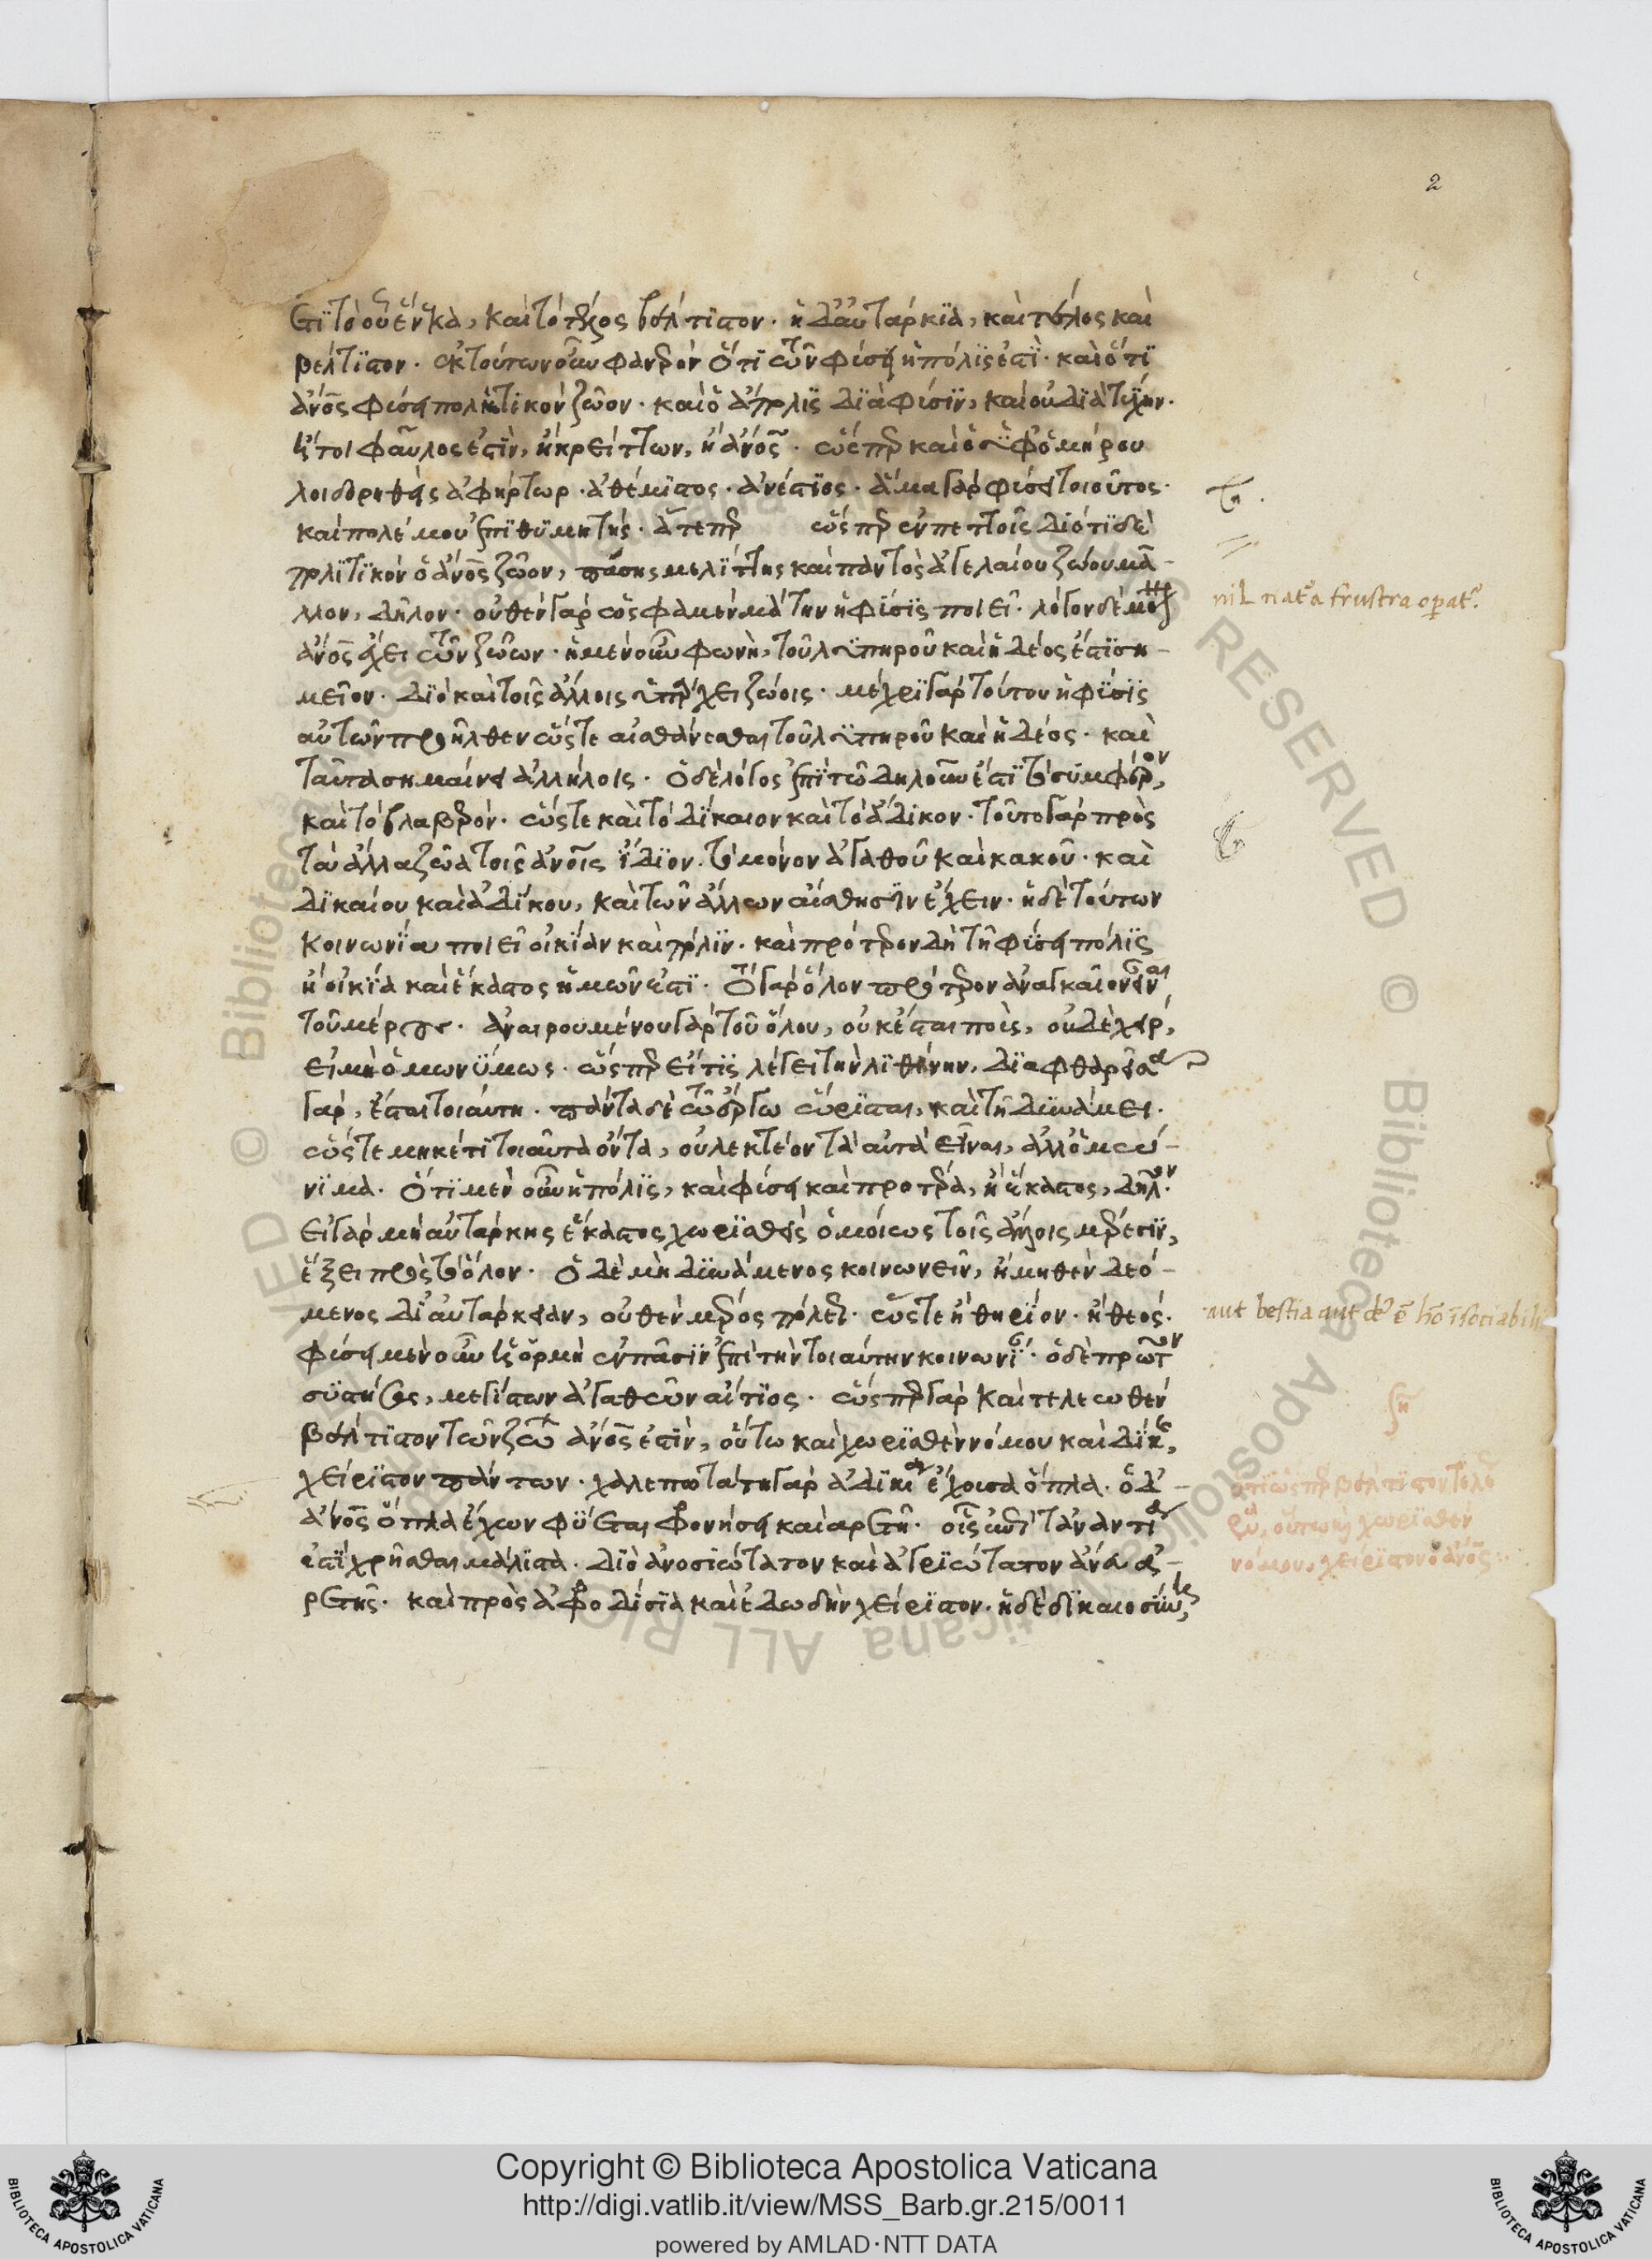 2
ἔτι τὸ οὗ ἕνεκα, καὶ τὸ τέλος βέλτιστον· ἡ δ' αὐτάρκια, καὶ τέλος καὶ
βέλτιστον· ἐκ τούτων οὖν φανερὸν ὅτι τῶν φύσει ἡ πόλις ἐστί· καὶ ὅτι
ἄνος φύσει πολιτικὸν ζῶον· καὶ ὁ ἄπολις διὰ φύσιν, καὶ οὐ διὰ τύχην·
ἤτοι φαῦλος ἐστὶν, ἢ κρείττων, ἢ ἄνος· ὥσπερ καὶ ὁ ὑφ' ὁμήρου
λοιδορηθεὶς ἀφρήτωρ· ἀθέμιστος· ἀνέστιος· ἅμα γὰρ φύσει τοιοῦτος·
καὶ πολέμου ἐπιθυμητής· ἅτε περ ὥσπερ ἐν πεττοῖς διότι δὲ
πολιτικὸν ὁ ἄνος ζῶον, πάσης μελίττης καὶ παντὸς ἀγελαίου ζώου μᾶ-
λλον, δῆλον· οὐθὲν γὰρ ὡς φαμὲν μάτην ἡ φύσις ποιεῖ· λόγον δὲ μόνον
nil nat'a frustra operat'.
ἄνος ἔχει τῶν ζώων· ἡ μὲν οὖν φωνὴ, τοῦ λυπηροῦ καὶ ἡδέος ἐστὶ ση-
μεῖον· διὸ καὶ τοῖς ἄλλοις ὑπάρχει ζώοις· μέχρι γὰρ τούτου ἡ φύσις
αὐτῶν προῆλθεν ὥστε αἰσθάνεσθαι τοῦ λυπηροῦ καὶ ἡδέος· καὶ
ταῦτα σημαίνει ἀλλήλοις· ὁ δὲ λόγος ἐπὶ τῶ δηλοῦν ἐστὶ τὸ συμφέρον,
καὶ τὸ βλαβερόν· ὥστε καὶ τὸ δίκαιον καὶ τὸ ἄδικον· τοῦτο γὰρ πρὸς
τὰ ἄλλα ζῶα τοῖς ἀνοις ἴδιον· τὸ μόνον ἀγαθοῦ καὶ κακοῦ· καὶ
δικαίου καὶ ἀδίκου, καὶ τῶν ἄλλων αἴσθησιν ἔχειν· ἡ δὲ τούτων
κοινωνία ποιεῖ οἰκίαν καὶ πόλιν· καὶ πρότερον δὴ τῆ φύσει πόλις
ἢ οἰκία καὶ ἕκαστος ἡμῶν ἐστί· τὸ γὰρ ὅλον πρότερον ἀναγκαῖον εἶναι
τοῦ μέρους· ἀναιρουμένου γὰρ τοῦ ὅλου, οὐκ ἔσται ποὺς, οὐδὲ χεὶρ,
εἰ μὴ ὁμωνύμως· ὥσπερ εἴ τις λέγει τὴν λιθίνην, διαφθαρεῖσα
γὰρ, ἔσται τοιαύτη· πάντα δὲ τῶ ἔργω ὥρισται, καὶ τῆ δυνάμει·
ὥστε μηκέτι τοιαῦτα ὄντα, οὐ λεκτέον τὰ αὐτὰ εἶναι, ἀλλ' ὁμώ-
νυμα· ὅτι μὲν οὖν ἡ πόλις, καὶ φύσει καὶ προτέρα, ἢ ἕκαστος, δῆλον·
εἰ γὰρ μὴ αὐτάρκης ἕκαστος χωρισθεὶς ὁμοίως τοῖς ἄλλοις μέρεσιν,
ἕξει πρὸς τὸ ὅλον· ὁ δὲ μὴ δυνάμενος κοινωνεῖν, ἢ μηθὲν δεό-
μενος δι' αὐτάρκειαν, οὐθὲν μέρος πόλεως· ὥστε ἢ θηρίον· ἢ θεός·
aut bestia aut de' ē hō īsociabilis
φύσει μὲν οὖν ἡ ὁρμὴ ἐν πᾶσιν ἐπὶ τὴν τοιαύτην κοινωνίαν· ὁ δὲ πρῶτον
συστήσας, μεγίστων ἀγαθῶν αἴτιος· ὥσπερ γὰρ καὶ τελεωθὲν
βέλτιστον τῶν ζώων ἄνος ἐστὶν, οὕτω καὶ χωρισθὲν νόμου καὶ δίκης,
χείριστον πάντων· χαλεπωτάτη γὰρ ἀδικία ἔχουσα ὅπλα· ὁ δ'
ἄνος ὅπλα ἔχων φύεται φρονήσει καὶ αρετῆ· οἷς ἐπὶ τἀναντία
ἐστὶ χρῆσθαι μάλιστα· διὸ ἀνοσιώτατον καὶ ἀγριώτατον ἄνευ ἀ-
ρετῆς· καὶ πρὸς ἀφροδίσια καὶ ἐδωδὴν χείριστον· ἡ δὲ δικαιοσύνη,
ση
ὅτι ὥσπερ βέλτιστον τελε
νόμου, χείριστον ὁ ἄνος:
Copyright © Biblioteca Apostolica Vaticana
http://digi.vatlib.it/view/MSS_Barb.gr.215/0011
powered by AMLAD·NTT DATA
BIBLIOTECA APOSTOLICA VATICANA
BIBLIOTECA APOSTOLICA VATICANA